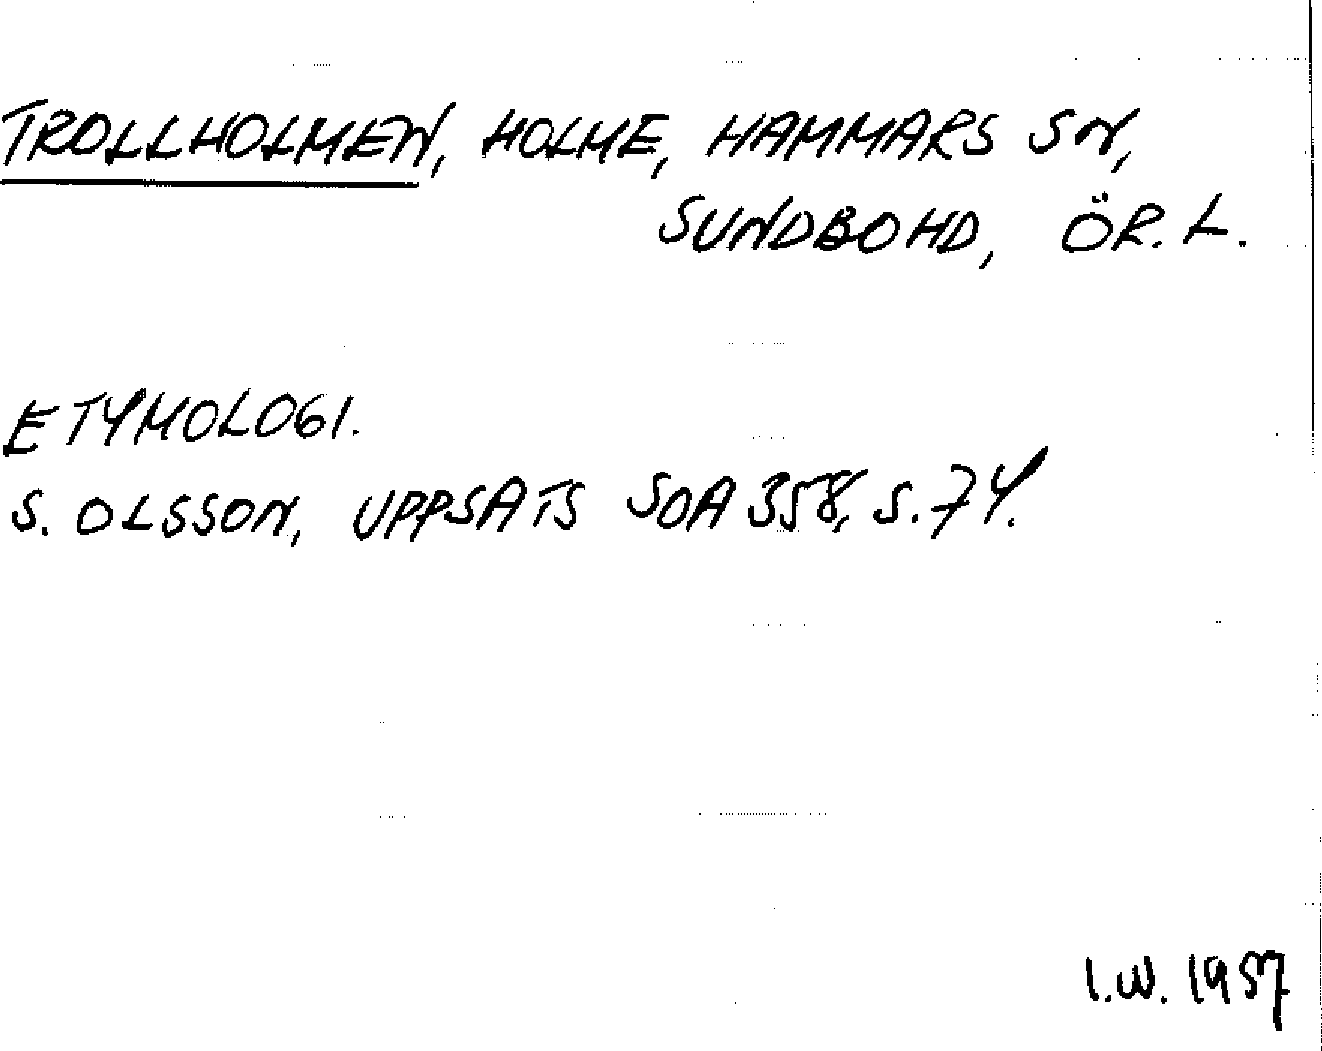 TROLLHOLMEN, HOLME, HAMMARS SN,
SUNDBOHD, ÖR. L.
ETYMOLOGI.
S. OLSSON, UPPSATS SOA 358, S. 74.
I.W. 1957